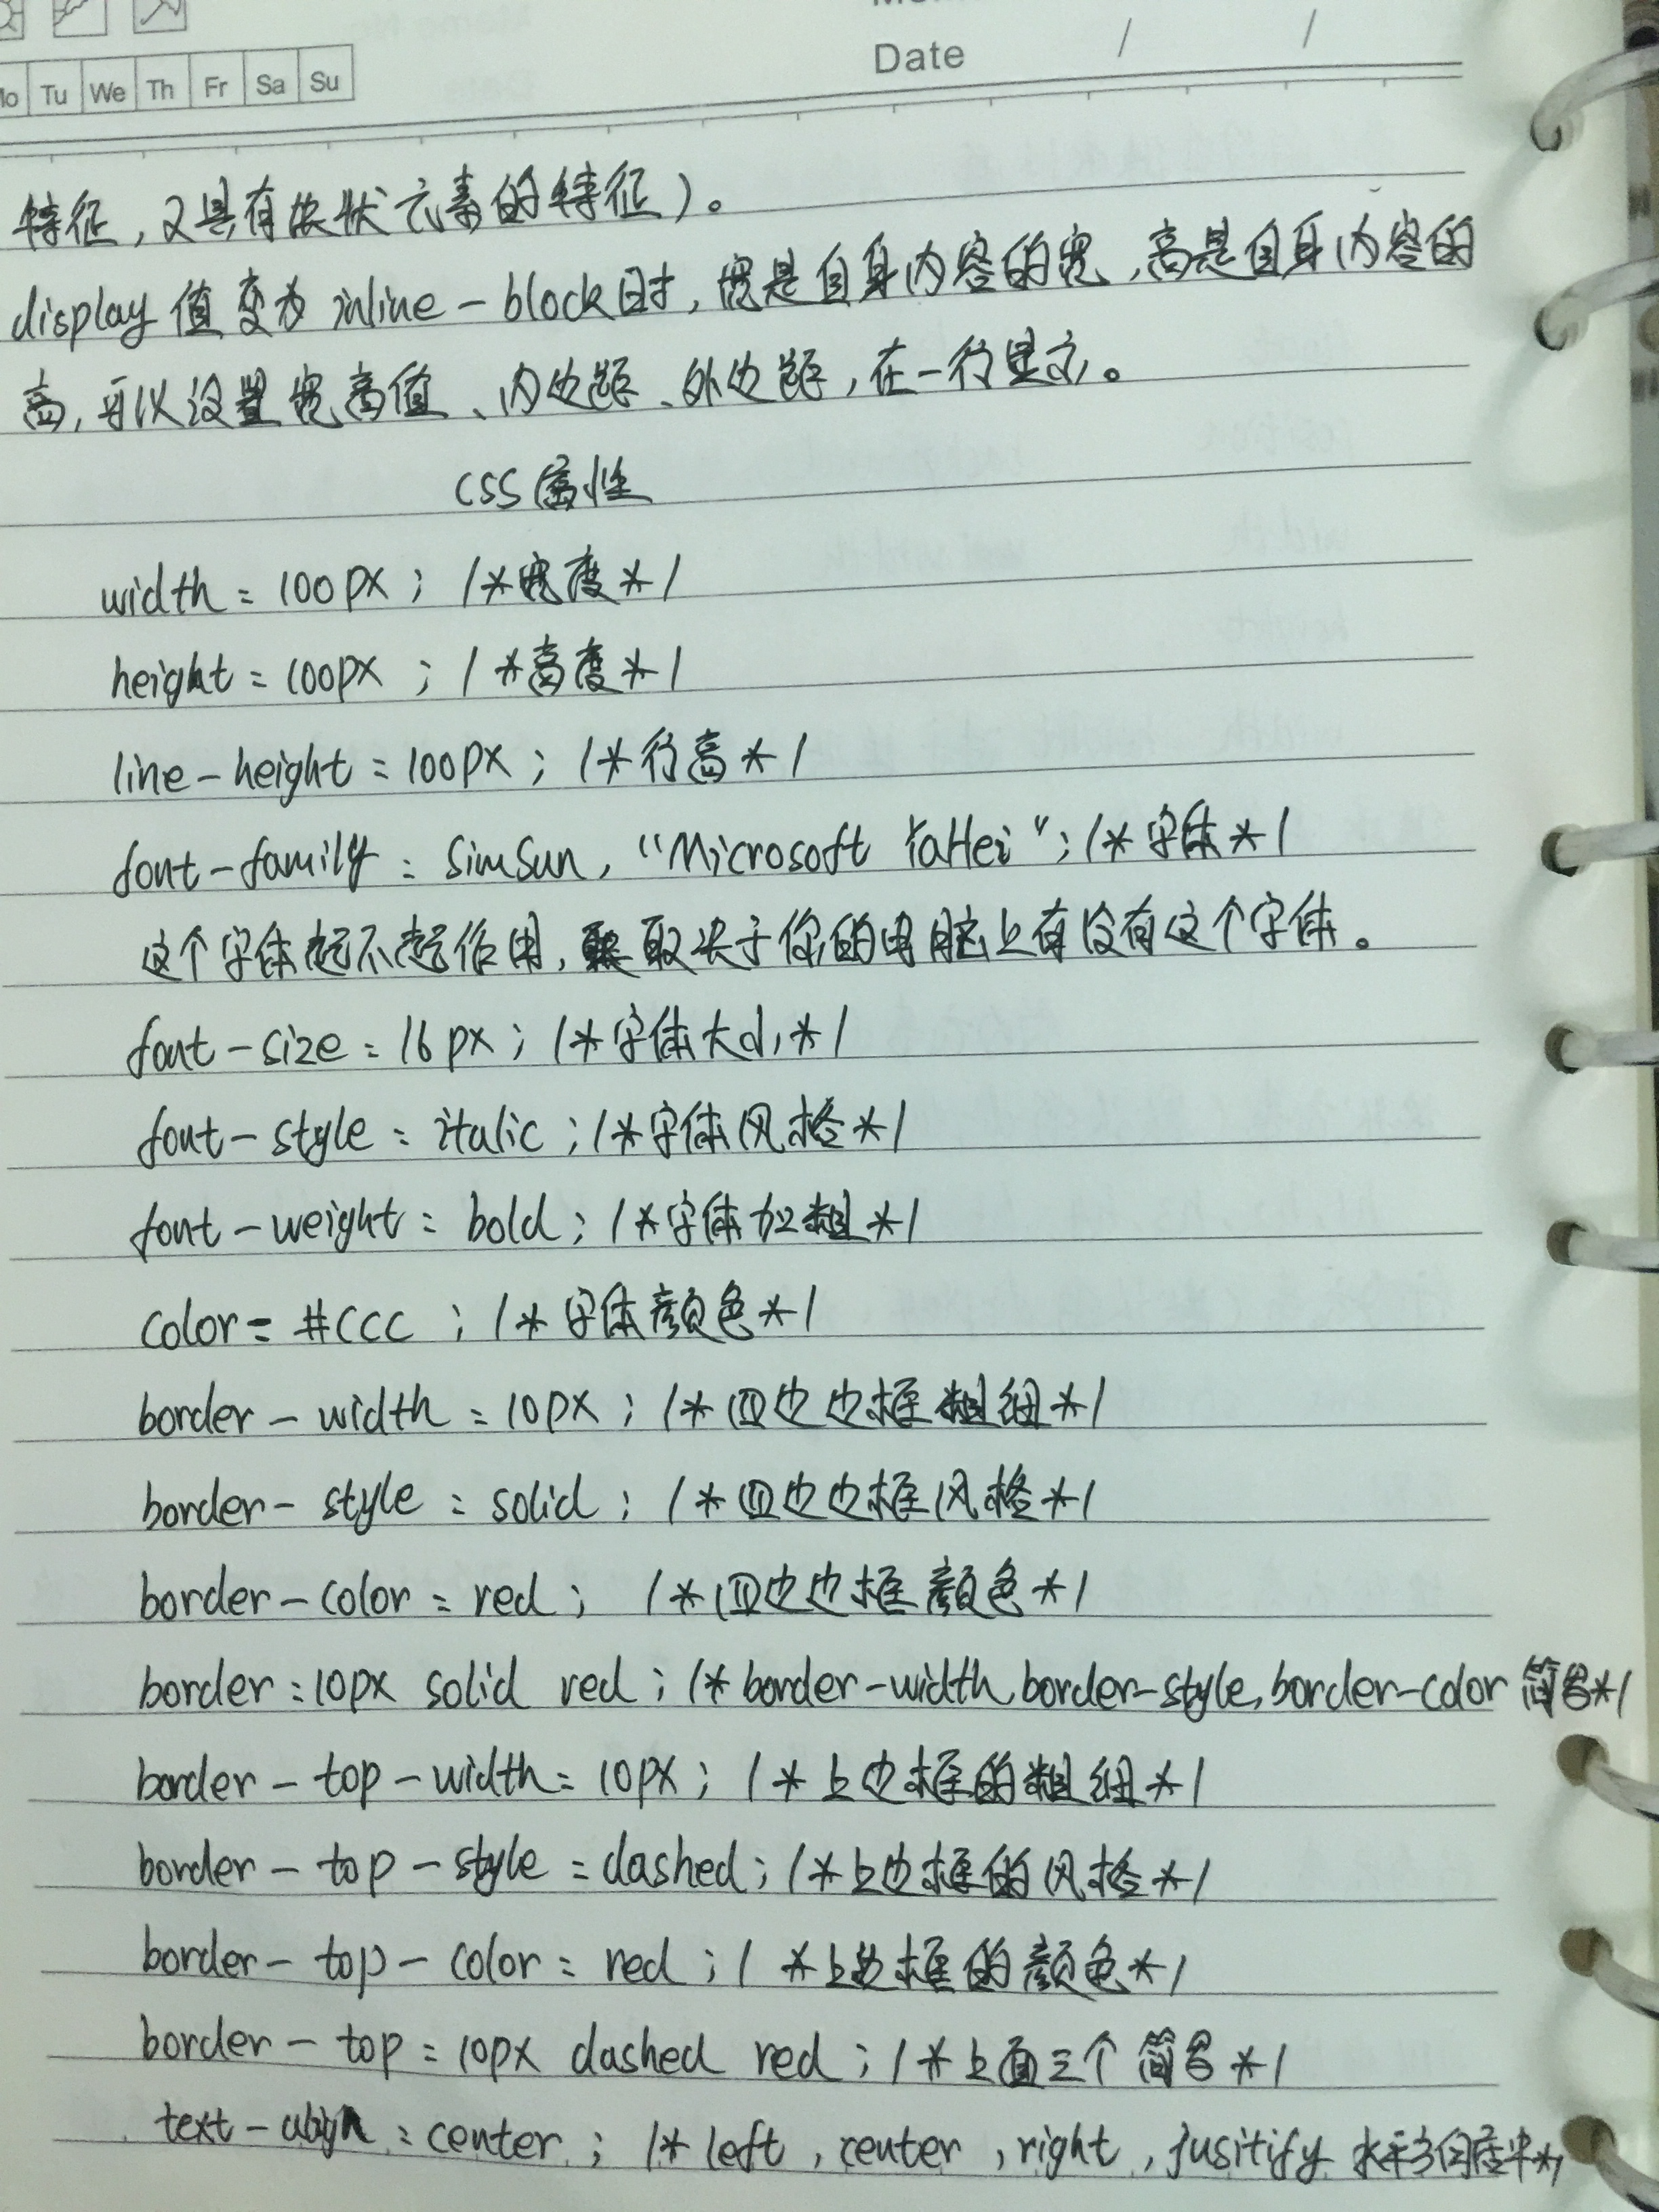 Mo Tu We Th Fr Sa Su
Date / /
特征，又具有块状元素的特征）。
display 值变为 inline-block时，宽是自身内容的宽，高是自身内容的
高，可以设置宽高值、内边距、外边距，在一行显示。
CSS属性
width = 100px ; /*宽度*/
height = 100px ; /*高度*/
line-height = 100px ; /*行高*/
font-family : SimSun, "Microsoft YaHei" ; /*字体*/
这个字体起不起作用, 取决于你的电脑上有没有这个字体。
font-size : 16px ; /*字体大小*/
font-style : italic ; /*字体风格*/
font-weight : bold ; /*字体加粗*/
color = #ccc ; /*字体颜色*/
border-width : 10px ; /*四边边框粗细*/
border-style : solid ; /*四边边框风格*/
border-color : red ; /*四边边框颜色*/
border : 10px solid red ; /* border-width, border-style, border-color 简写*/
border-top-width = 10px ; /*上边框的粗细*/
border-top-style = dashed ; /*上边框的风格*/
border-top-color = red ; /*上边框的颜色*/
border-top = 10px dashed red ; /*上面三个简写*/
text-align : center ; /* left , center , right , jusitify 水平方向居中*/